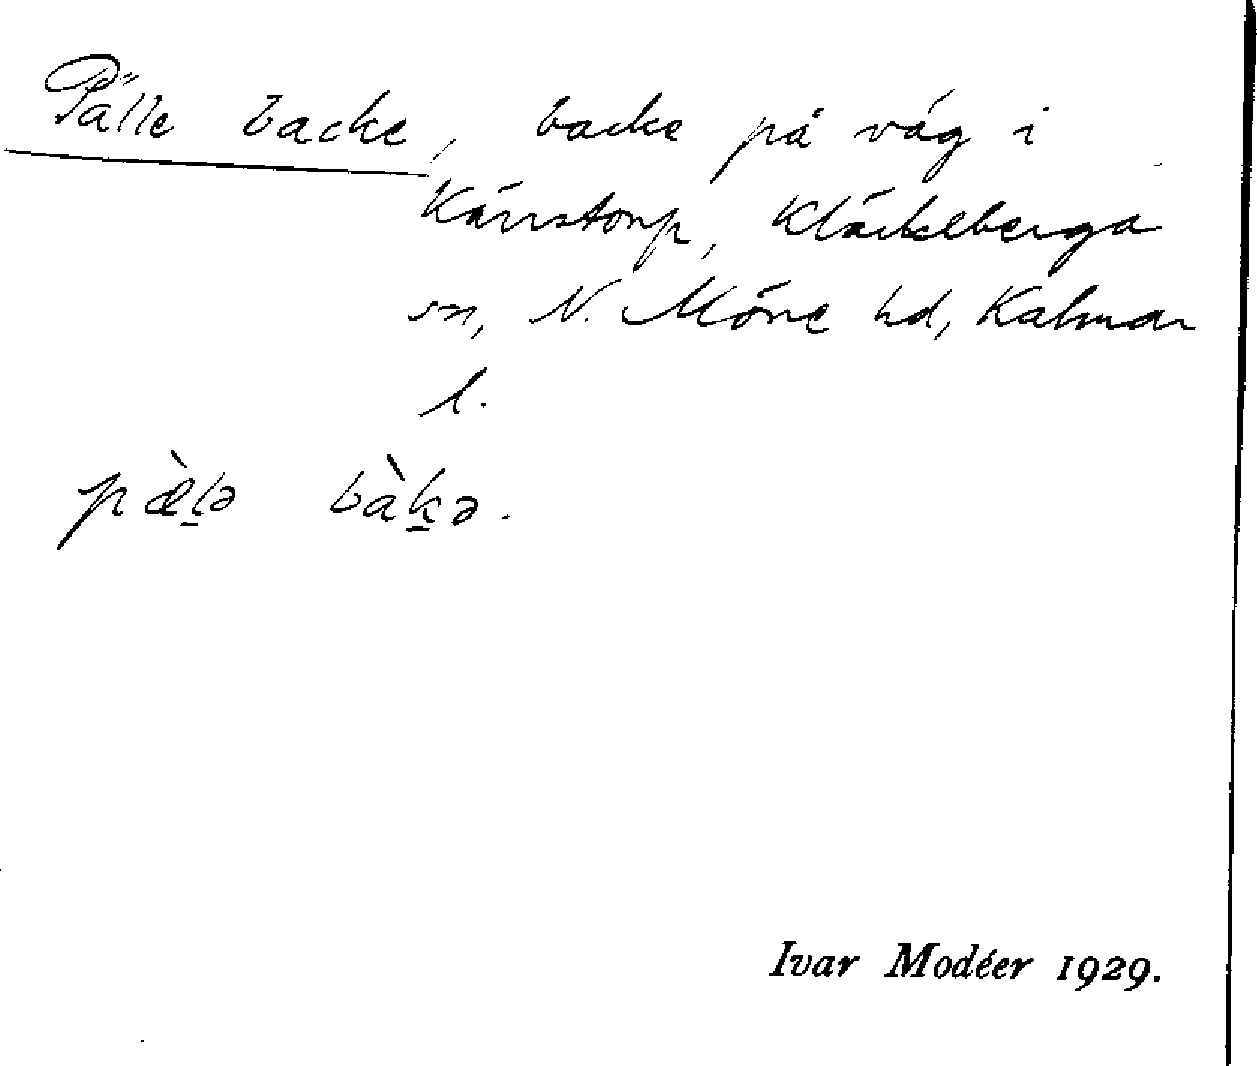 Pälle backe, backe på väg i
Kärrstorp, Kläckeberga
sn, N. Möre hd, Kalmar
l.
pæ̀l̠ə bàk̠ə.
Ivar Modéer 1929.